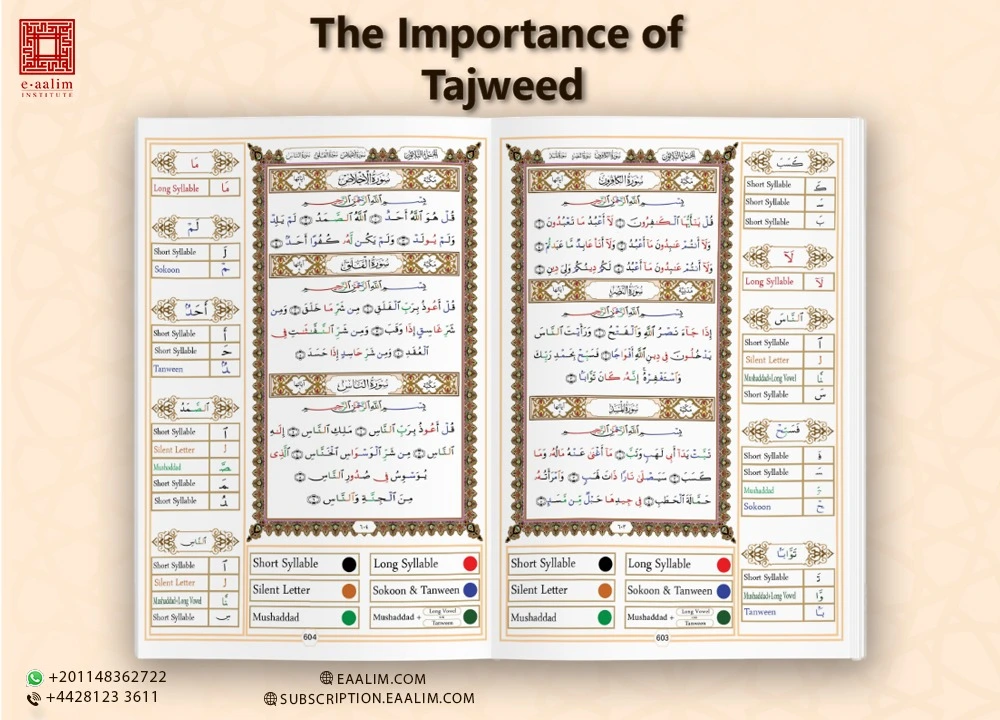 e·aalim
INSTITUTE
The Importance of
Tajweed
سُورَةُ الكَافِرُونَ
بِسْمِ اللَّهِ الرَّحْمَٰنِ الرَّحِيمِ
قُلْ يَٰٓأَيُّهَا ٱلْكَٰفِرُونَ ۝١ لَآ أَعْبُدُ مَا تَعْبُدُونَ ۝٢
وَلَآ أَنتُمْ عَٰبِدُونَ مَآ أَعْبُدُ ۝٣ وَلَآ أَنَا۠ عَابِدٌ مَّا عَبَدتُّمْ ۝٤
وَلَآ أَنتُمْ عَٰبِدُونَ مَآ أَعْبُدُ ۝٥ لَكُمْ دِينُكُمْ وَلِىَ دِينِ ۝٦
سُورَةُ النَّصْرِ
بِسْمِ اللَّهِ الرَّحْمَٰنِ الرَّحِيمِ
إِذَا جَآءَ نَصْرُ ٱللَّهِ وَٱلْفَتْحُ ۝١ وَرَأَيْتَ ٱلنَّاسَ
يَدْخُلُونَ فِى دِينِ ٱللَّهِ أَفْوَاجًا ۝٢ فَسَبِّحْ بِحَمْدِ رَبِّكَ
وَٱسْتَغْفِرْهُ إِنَّهُۥ كَانَ تَوَّابًۢا ۝٣
سُورَةُ المَسَدِ
بِسْمِ اللَّهِ الرَّحْمَٰنِ الرَّحِيمِ
تَبَّتْ يَدَآ أَبِى لَهَبٍ وَتَبَّ ۝١ مَآ أَغْنَىٰ عَنْهُ مَالُهُۥ وَمَا
كَسَبَ ۝٢ سَيَصْلَىٰ نَارًا ذَاتَ لَهَبٍ ۝٣ وَٱمْرَأَتُهُۥ
حَمَّالَةَ ٱلْحَطَبِ ۝٤ فِى جِيدِهَا حَبْلٌ مِّن مَّسَدٍۭ ۝٥
٦٠٣
كَسَبَ
Short Syllable كَ
Short Syllable سَ
Short Syllable بَ
لَآ
Long Syllable لَآ
ٱلنَّاسَ
Short Syllable ٱ
Silent Letter ل
Mushaddad+Long Vowel نَّا
Short Syllable سَ
فَسَبِّحْ
Short Syllable فَ
Short Syllable سَ
Mushaddad بِّ
Sokoon حْ
تَوَّابًا
Short Syllable تَ
Mushaddad+Long Vowel وَّا
Tanween بًا
Short Syllable
Long Syllable
Silent Letter
Sokoon & Tanween
Mushaddad
Mushaddad + Long Vowel or Tanween
603
سُورَةُ الإِخْلَاصِ
بِسْمِ اللَّهِ الرَّحْمَٰنِ الرَّحِيمِ
قُلْ هُوَ ٱللَّهُ أَحَدٌ ۝١ ٱللَّهُ ٱلصَّمَدُ ۝٢ لَمْ يَلِدْ
وَلَمْ يُولَدْ ۝٣ وَلَمْ يَكُن لَّهُۥ كُفُوًا أَحَدٌۢ ۝٤
سُورَةُ الفَلَقِ
بِسْمِ اللَّهِ الرَّحْمَٰنِ الرَّحِيمِ
قُلْ أَعُوذُ بِرَبِّ ٱلْفَلَقِ ۝١ مِن شَرِّ مَا خَلَقَ ۝٢ وَمِن
شَرِّ غَاسِقٍ إِذَا وَقَبَ ۝٣ وَمِن شَرِّ ٱلنَّفَّٰثَٰتِ فِى
ٱلْعُقَدِ ۝٤ وَمِن شَرِّ حَاسِدٍ إِذَا حَسَدَ ۝٥
سُورَةُ النَّاسِ
بِسْمِ اللَّهِ الرَّحْمَٰنِ الرَّحِيمِ
قُلْ أَعُوذُ بِرَبِّ ٱلنَّاسِ ۝١ مَلِكِ ٱلنَّاسِ ۝٢ إِلَٰهِ
ٱلنَّاسِ ۝٣ مِن شَرِّ ٱلْوَسْوَاسِ ٱلْخَنَّاسِ ۝٤ ٱلَّذِى
يُوَسْوِسُ فِى صُدُورِ ٱلنَّاسِ ۝٥
مِنَ ٱلْجِنَّةِ وَٱلنَّاسِ ۝٦
٦٠٤
مَا
Long Syllable مَا
لَمْ
Short Syllable لَ
Sokoon مْ
أَحَدٌ
Short Syllable أَ
Short Syllable حَ
Tanween دٌ
ٱلصَّمَدُ
Short Syllable ٱ
Silent Letter ل
Mushaddad صَّ
Short Syllable مَ
Short Syllable دُ
ٱلنَّاسِ
Short Syllable ٱ
Silent Letter ل
Mushaddad+Long Vowel نَّا
Short Syllable سِ
Short Syllable
Long Syllable
Silent Letter
Sokoon & Tanween
Mushaddad
Mushaddad + Long Vowel or Tanween
604
+201148362722
+4428123 3611
EAALIM.COM
SUBSCRIPTION.EAALIM.COM